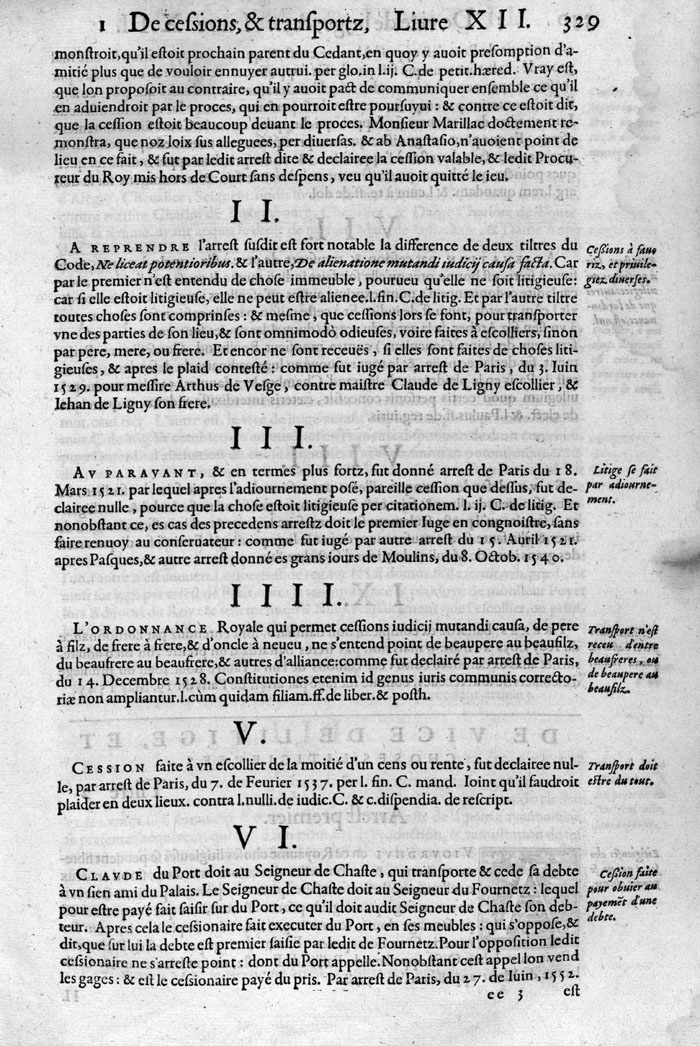 1 De cessions, & transportz, Liure XII. 329
monstroit, qu'il estoit prochain parent du Cedant, en quoy y auoit presomption d'a-
mitié plus que de vouloir ennuyer autrui. per glo. in l. ij. C. de petit. hæred. Vray est,
que lon proposoit au contraire, qu'il y auoit pact de communiquer ensemble ce qu'il
en aduiendroit par le proces, qui en pourroit estre poursuyui : & contre ce estoit dit,
que la cession estoit beaucoup deuant le proces. Monsieur Marillac doctement re-
monstra, que noz loix sus alleguees, per diuersas. & ab Anastasio, n'auoient point de
lieu en ce fait, & fut par ledit arrest dite & declairee la cession valable, & ledit Procu-
reur du Roy mis hors de Court sans despens, veu qu'il auoit quitté le jeu.
II.
A REPRENDRE l'arrest susdit est fort notable la difference de deux tiltres du
Code, Ne liceat potentioribus. & l'autre, De alienatione mutandi iudicij causa facta. Car
par le premier n'est entendu de chose immeuble, pourueu qu'elle ne soit litigieuse:
car si elle estoit litigieuse, elle ne peut estre alienee. l. fin. C. de litig. Et par l'autre tiltre
toutes choses sont comprinses : & mesme, que cessions lors se font, pour transporter
vne des parties de son lieu, & sont omnimodò odieuses, voire faites à escolliers, sinon
par pere, mere, ou frere. Et encor ne sont receuës, si elles sont faites de choses liti-
gieuses, & apres le plaid contesté : comme fut iugé par arrest de Paris, du 3. Iuin
1529. pour messire Arthus de Vesge, contre maistre Claude de Ligny escollier, &
Iehan de Ligny son frere.
Cessions à fauo
riz, et priuile-
giez diuerses.
III.
AV PARAVANT, & en termes plus fortz, fut donné arrest de Paris du 18.
Mars 1521. par lequel apres l'adiournement posé, pareille cession que dessus, fut de-
clairee nulle, pource que la chose estoit litigieuse per citationem. l. ij. C. de litig. Et
nonobstant ce, es cas des precedens arrestz doit le premier Iuge en congnoistre, sans
faire renuoy au conseruateur : comme fut iugé par autre arrest du 15. Auril 1521.
apres Pasques, & autre arrest donné es grans iours de Moulins, du 8. Octob. 1540.
Litige se fait
par adiourne-
ment.
IIII.
L'ORDONNANCE Royale qui permet cessions iudicij mutandi causa, de pere
à filz, de frere à frere, & d'oncle à neueu, ne s'entend point de beaupere au beaufilz,
du beaufrere au beaufrere, & autres d'alliance: comme fut declairé par arrest de Paris,
du 14. Decembre 1528. Constitutiones etenim id genus iuris communis correcto-
riæ non ampliantur. l. cùm quidam filiam. ff. de liber. & posth.
Transport n'est
receu d'entre
beaufreres, ou
de beaupere au
beaufilz.
V.
CESSION faite à vn escollier de la moitié d'un cens ou rente, fut declairee nul-
le, par arrest de Paris, du 7. de Feurier 1537. per l. fin. C. mand. Ioint qu'il faudroit
plaider en deux lieux. contra l. nulli. de iudic. C. & c. dispendia. de rescript.
Transport doit
estre du tout.
VI.
CLAVDE du Port doit au Seigneur de Chaste, qui transporte & cede sa debte
à vn sien ami du Palais. Le Seigneur de Chaste doit au Seigneur du Fournetz : lequel
pour estre payé fait saisir sur du Port, ce qu'il doit audit Seigneur de Chaste son deb-
teur. Apres cela le cessionaire fait executer du Port, en ses meubles : qui s'oppose, &
dit, que sur lui la debte est premier saisie par ledit de Fournetz. Pour l'opposition ledit
cessionaire ne s'arreste point : dont du Port appelle. Nonobstant cest appel lon vend
les gages : & est le cessionaire payé du pris. Par arrest de Paris, du 27. de Iuin, 1552.
Cession faite
pour obuier au
payemét d'une
debte.
ee 3 est